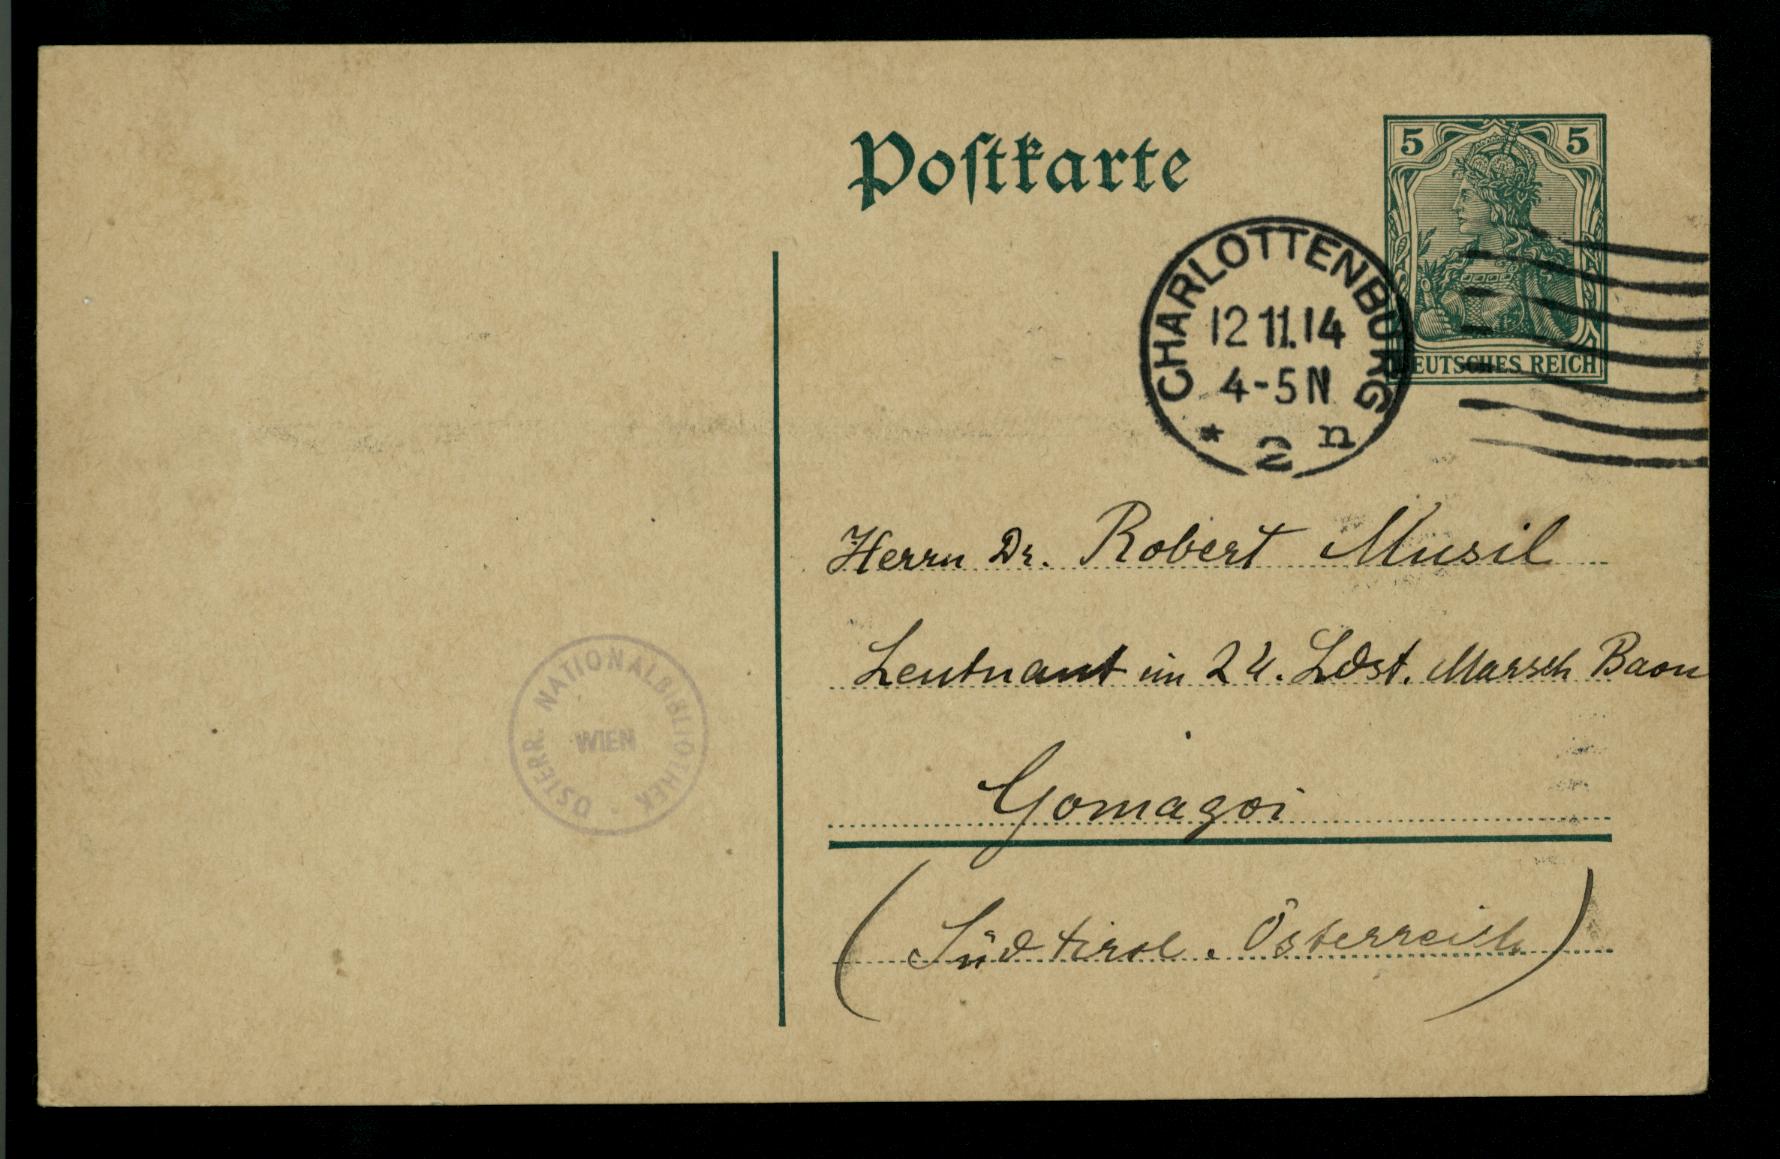 Postkarte
5 5
DEUTSCHES REICH
CHARLOTTENBURG
12 11.14
4-5 N
* 2 n
Herrn Dr. Robert Musil
Leutnant im 24. Ldst. Marsch Baon
Gomagoi
(Südtirol. Österreich)
ÖSTERR. NATIONALBIBLIOTHEK
WIEN